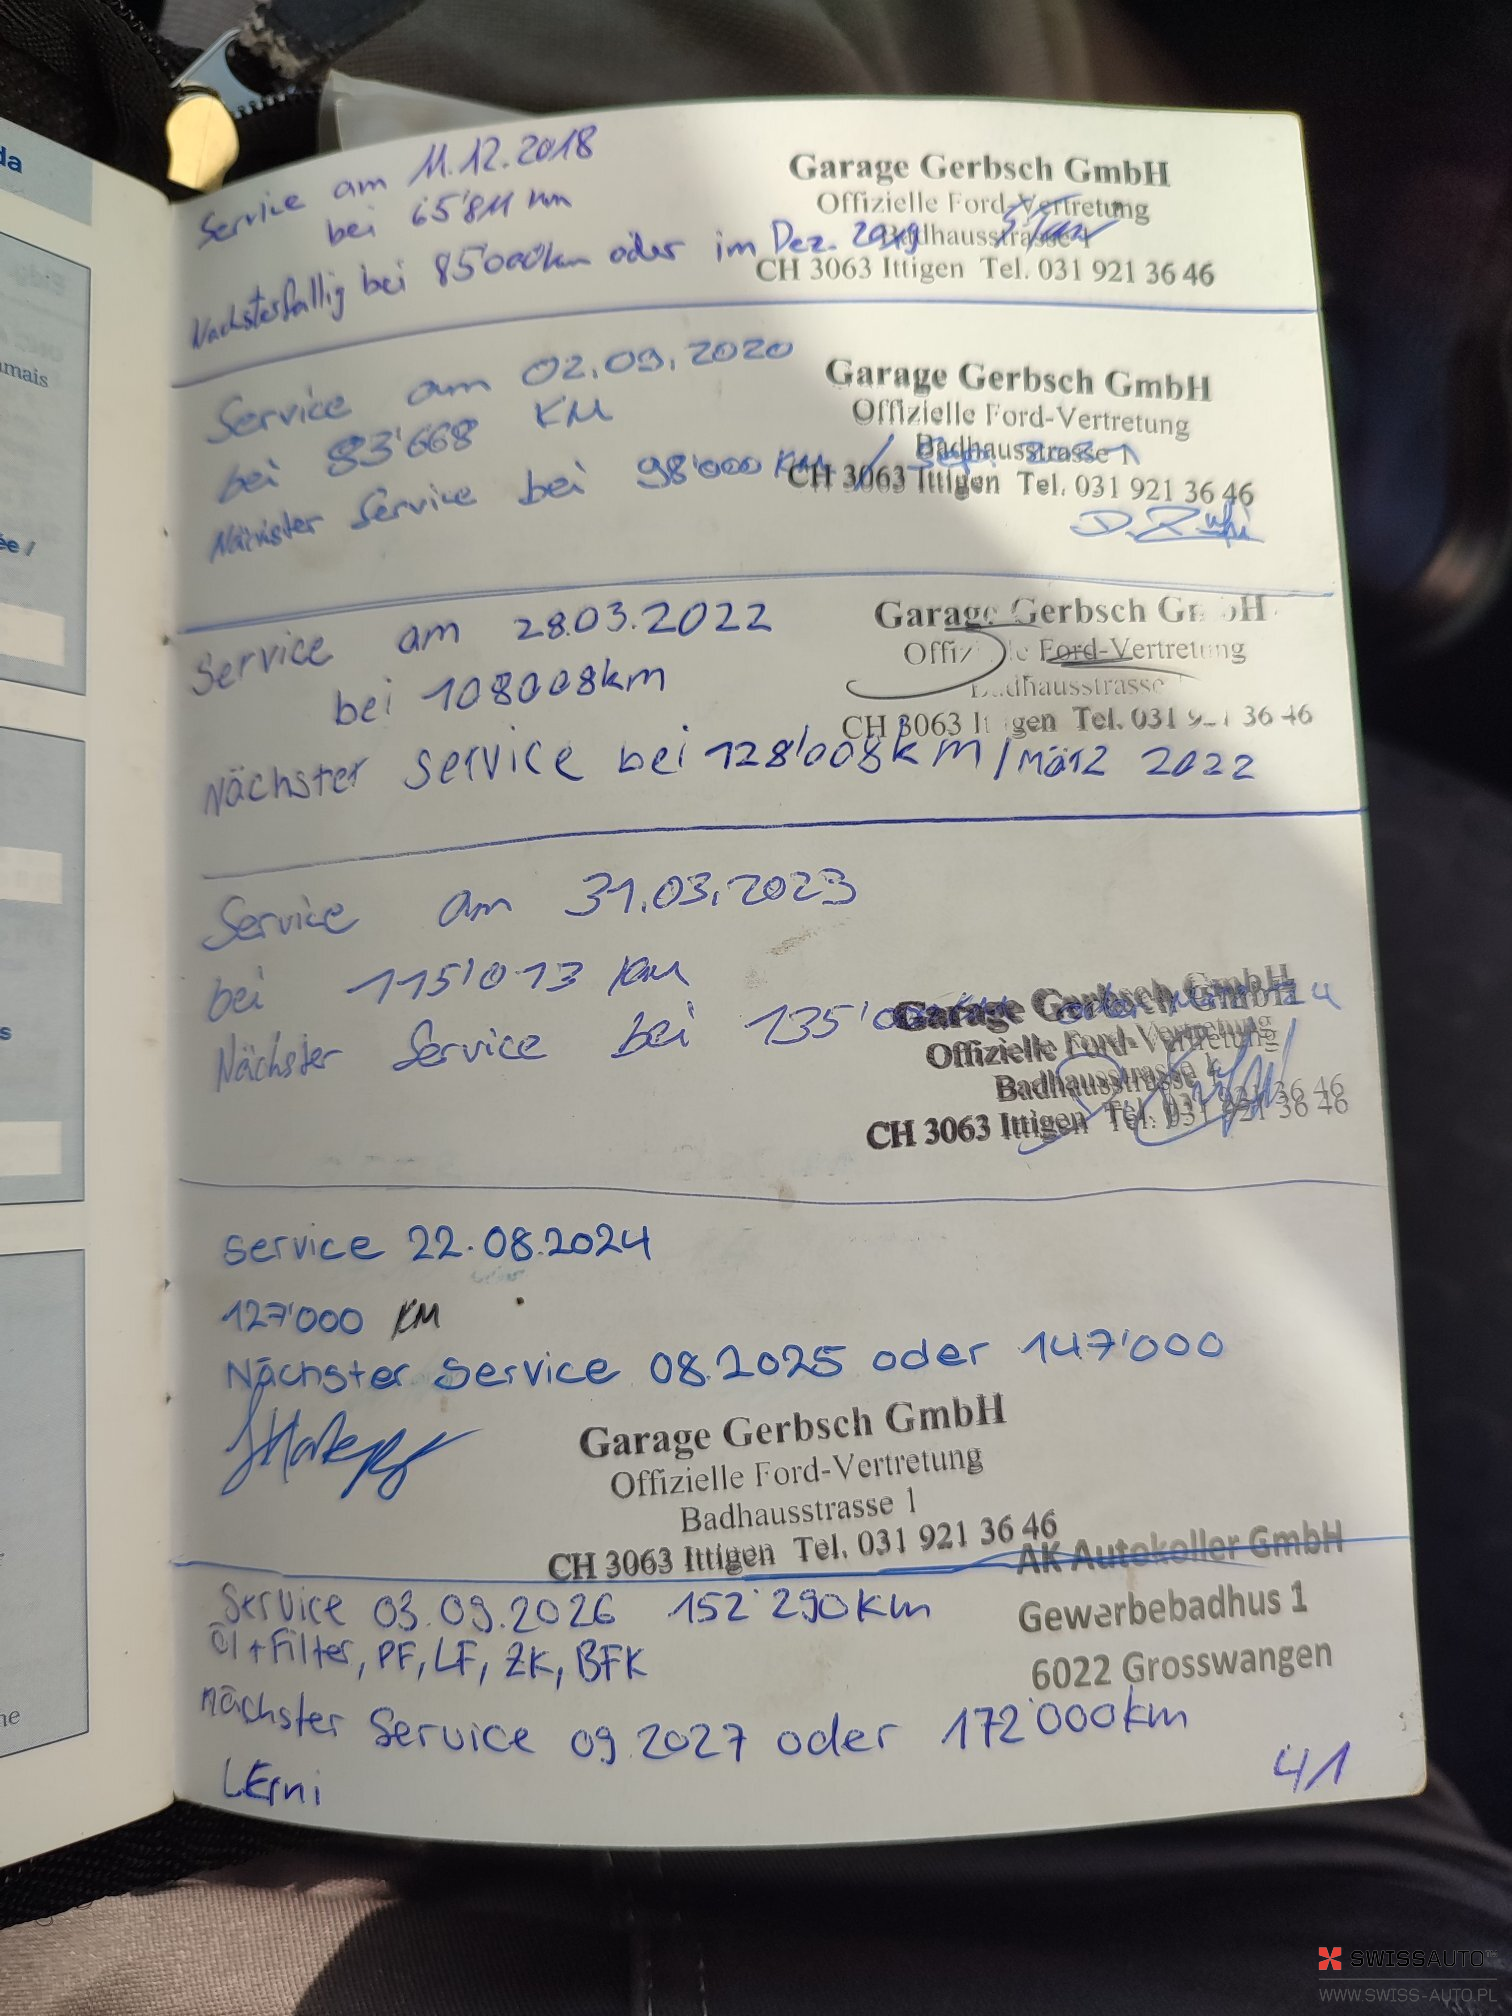 da
mais
ée /
s
ne
Service am 11.12.2018
bei 65'811 km
Nächsterfällig bei 85'000km oder im Dez. 2019
Garage Gerbsch GmbH
Offizielle Ford-Vertretung
Badhausstrasse 1
CH 3063 Ittigen Tel. 031 921 36 46
Service am 02.09.2020
bei 83'668 KM
Nächster Service bei 98'000 KM /
Garage Gerbsch GmbH
Offizielle Ford-Vertretung
Badhausstrasse 1
CH 3063 Ittigen Tel. 031 921 36 46
Service am 28.03.2022
bei 108008km
Nächster Service bei 128'008km/März 2022
Garage Gerbsch GmbH
Offizielle Ford-Vertretung
Badhausstrasse
CH 3063 Ittigen Tel. 031 921 36 46
Service am 31.03.2023
bei 115'013 KM
Nächster Service bei 135'000
Garage Gerbsch GmbH
Offizielle Ford-Vertretung
Badhausstrasse 1
CH 3063 Ittigen Tel. 031 921 36 46
Service 22.08.2024
127'000 KM
Nächster Service 08.2025 oder 147'000
Garage Gerbsch GmbH
Offizielle Ford-Vertretung
Badhausstrasse 1
CH 3063 Ittigen Tel. 031 921 36 46
AK Autokoller GmbH
Gewerbebadhus 1
6022 Grosswangen
Service 03.09.2026 152'290km
Öl + Filter, PF, LF, ZK, BFK
Nächster Service 09.2027 oder 172'000km
LErni
41
SWISSAUTO
WWW.SWISS-AUTO.PL